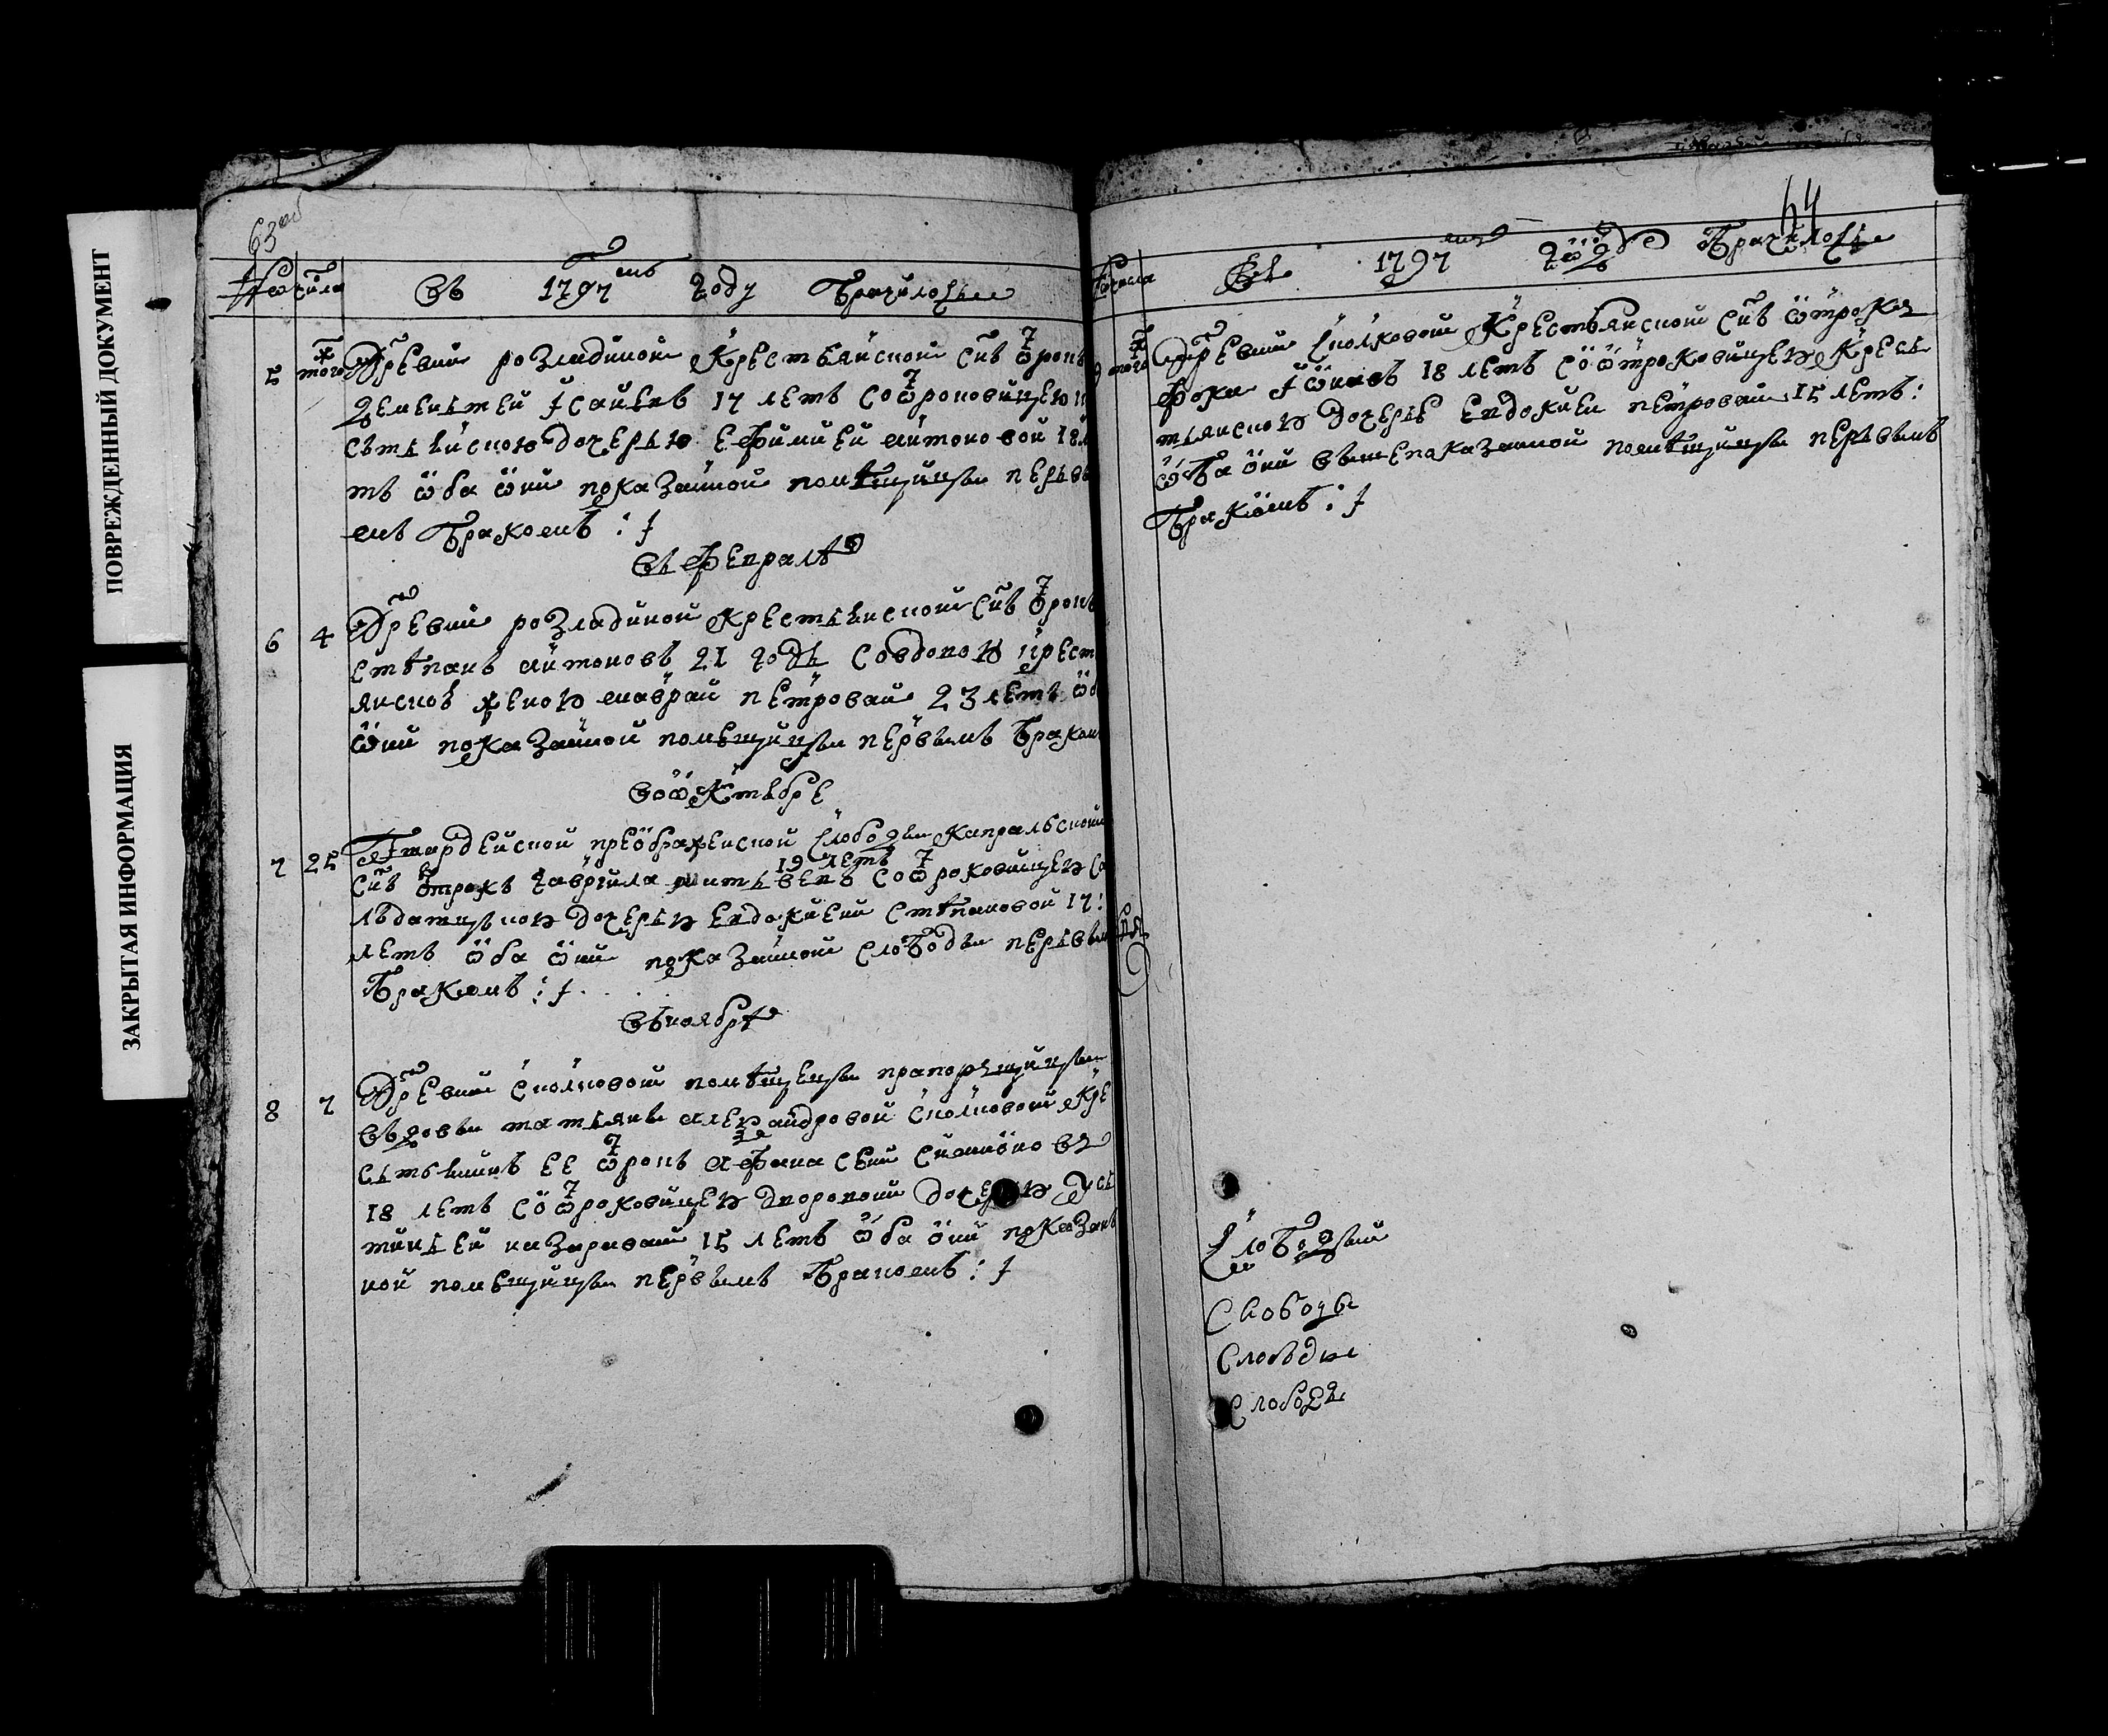 ПОВРЕЖДЕННЫЙ ДОКУМЕНТ
ЗАКРЫТАЯ ИНФОРМАЦИЯ
63об
числа Въ 1797мъ году Брачилось
5 тогож Деревни розладиной крестьянской снъ отрокъ
Дементей Iсаиевъ 17 летъ соотроковицею кр
сътьянскою дочерью Ефимией антоновой 18 л
тъ оба они показанной помѣщицы первы
мъ бракомъ :
въ Февралѣ
6 4 Деревни розладиной крестьянской снъ отрокъ
стѣпанъ антоновъ 21 годъ совдовою крест
янскою женою маврай петровай 23 летъ об
они показанной помещицы первымъ браком
вооктябре
7 25 Гвардейской преображенской слободы капральской
19 летъ
снъ отрокъ гаврiила матвѣевъ соотроковицею со
лъдатцкою дочерью евдокиеии стѣпановой 17:
летъ оба они показанной слободы первым
бракомъ :
въноябрѣ
8 7 Деревни сполковой помѣщецы прапорщицы
въдовы татьяны александровой сполковой кре
стьянинъ ее отрокъ афанасеи симионовъ
18 летъ соотроковицею дворовой дочерью усъ
тиньей назаровай 15 летъ оба они показан
ной помещицы первымъ бракомъ :
64
числа Въ 1797мъ году Брачилось
9 тогож Деревни сполковой крестьянской снъ отрокъ
фока iоновъ 18 летъ соотроковицею кресь
тьянскою дочерью евдокиеи петровай 15 летъ:
оба они вышепоказанной помѣщицы первымъ
бракомъ :
Слободы
Слободы
Слободы
Слободы